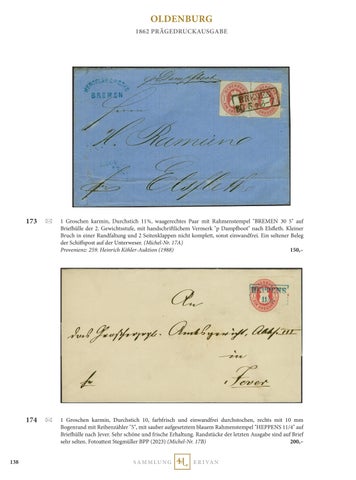 OLDENBURG
1862 PRÄGEDRUCKAUSGABE
BREMEN
p Dampfboot
BREMEN
H.
Elsfleth
173 1 Groschen karmin, Durchstich 11¾, waagerechtes Paar mit Rahmenstempel "BREMEN 30 5" auf
Briefhülle der 2. Gewichtsstufe, mit handschriftlichem Vermerk "p Dampfboot" nach Elsfleth. Kleiner
Bruch in einer Randfaltung und 2 Seitenklappen nicht komplett, sonst einwandfrei. Ein seltener Beleg
der Schiffspost auf der Unterweser. (Michel-Nr. 17A)
Provenienz: 259. Heinrich Köhler-Auktion (1988) 150,-
HEPPENS
11
An
das Großherzogl. Amtsgericht, Abth. III
in
Jever
174 1 Groschen karmin, Durchstich 10, farbfrisch und einwandfrei durchstochen, rechts mit 10 mm
Bogenrand mit Reihenzähler "5", mit sauber aufgesetztem blauem Rahmenstempel "HEPPENS 11/4" auf
Briefhülle nach Jever. Sehr schöne und frische Erhaltung. Randstücke der letzten Ausgabe sind auf Brief
sehr selten. Fotoattest Stegmüller BPP (2023) (Michel-Nr. 17B) 200,-
138
SAMMLUNG ERIVAN